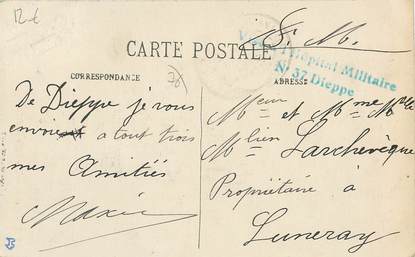 12 €
S. M.
CARTE POSTALE
Hôpital Militaire
N° 37 Dieppe
CORRESPONDANCE
ADRESSE
De Dieppe je vous
envoie a tout trois
mes Amitiés
Maxie
Meur et Mme
Mlien Larchevêque
Propriétaire à
Luneray